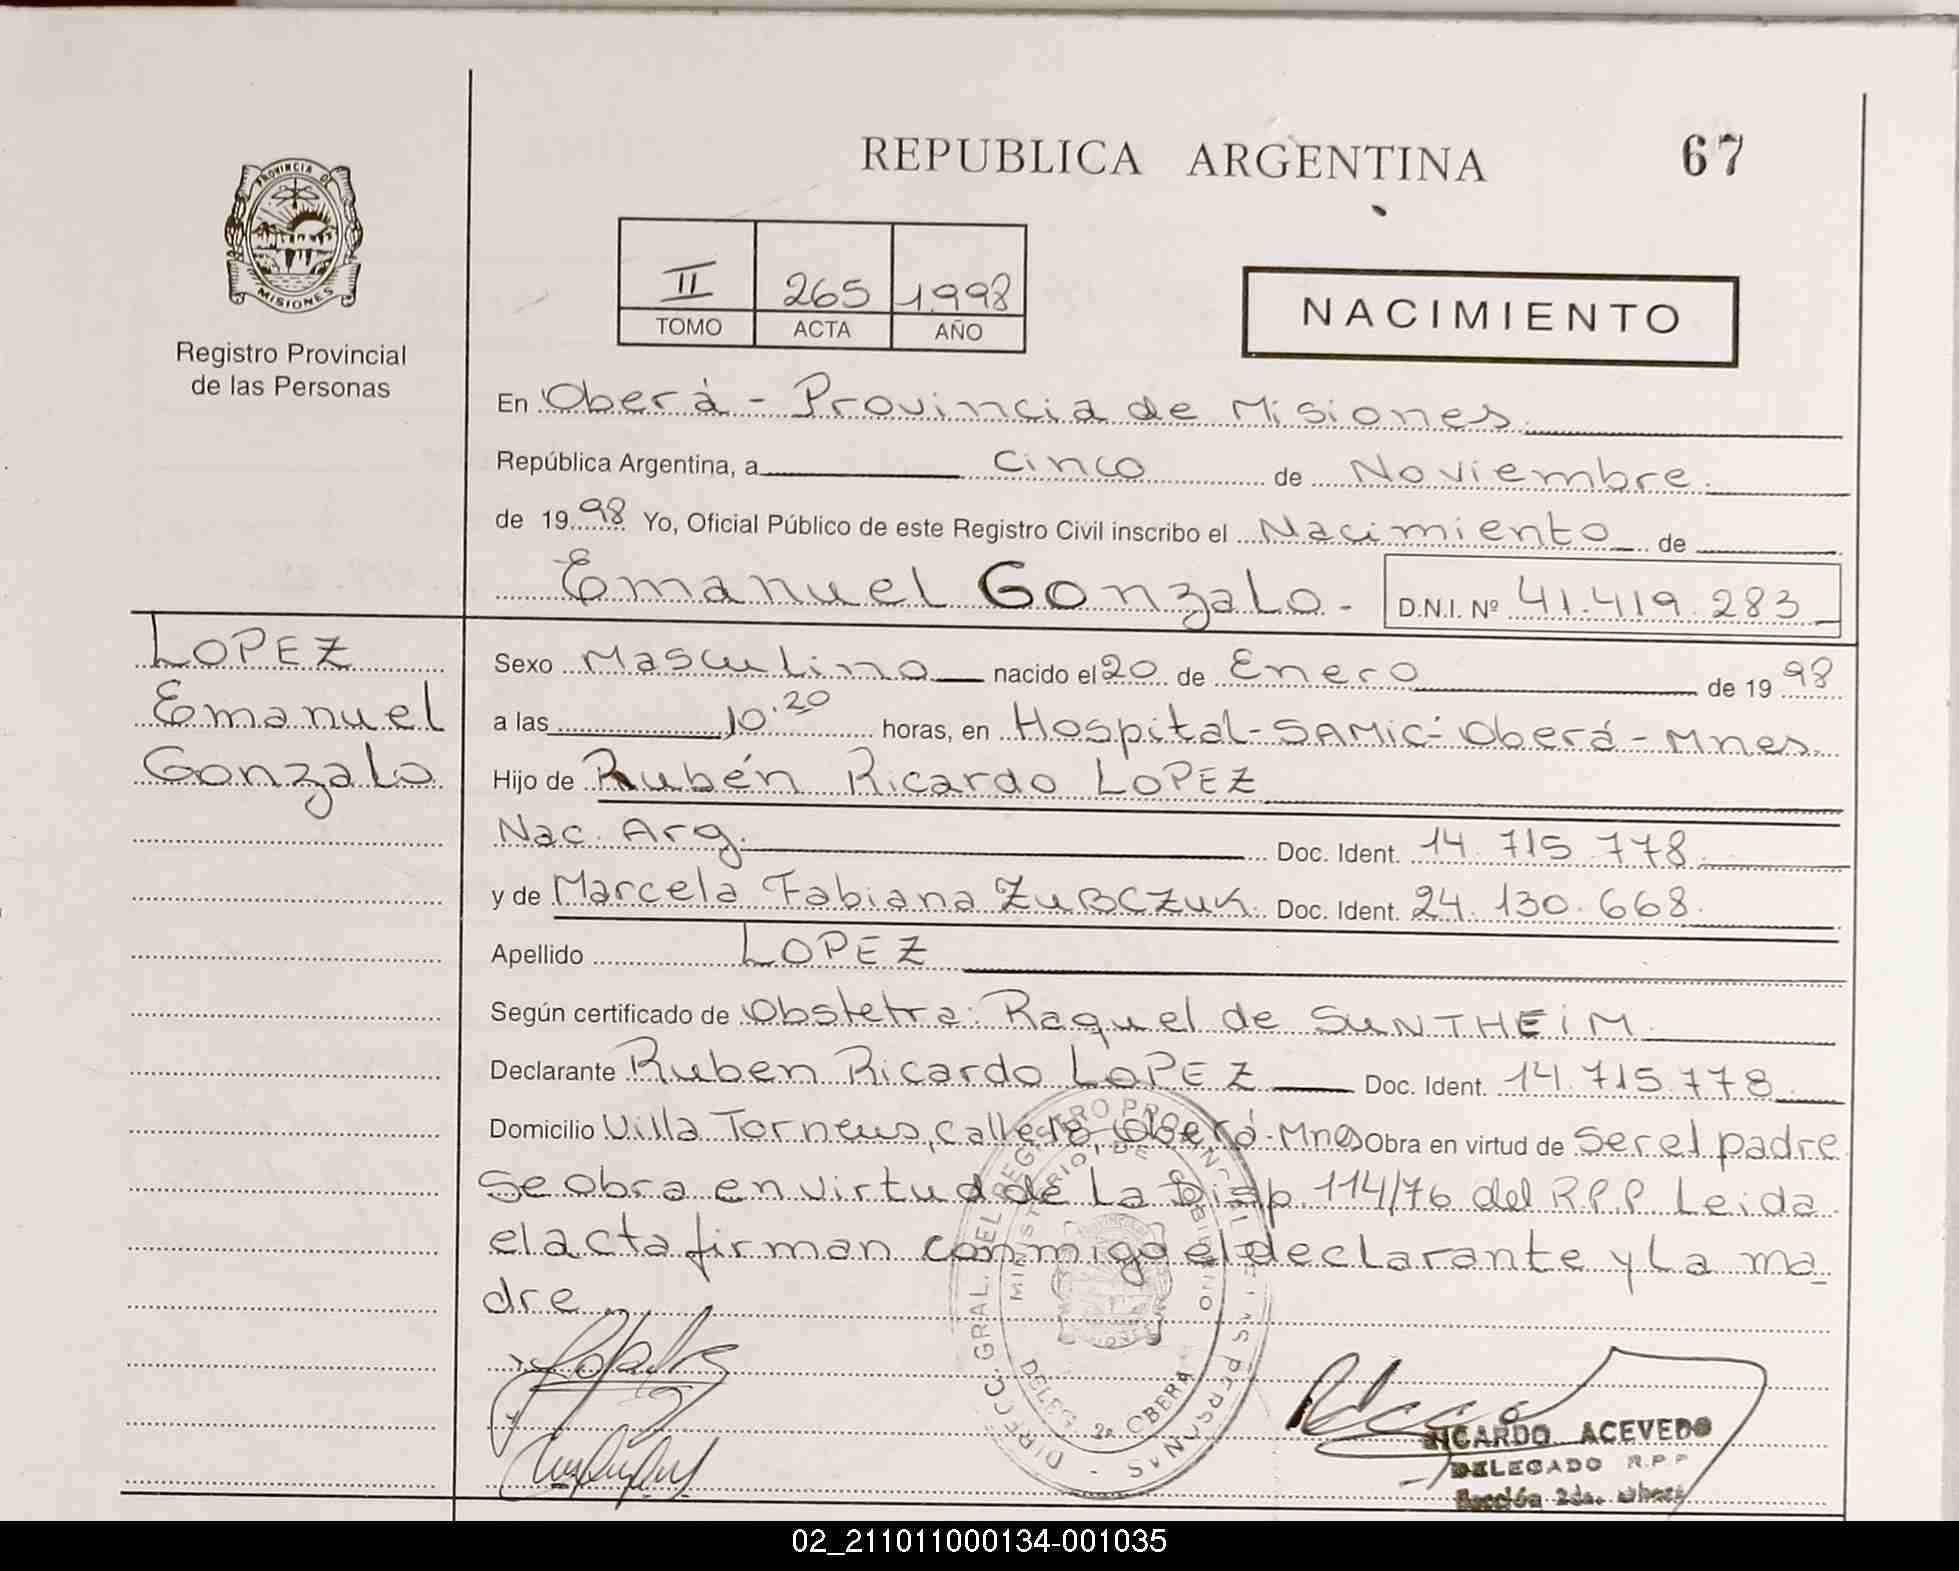 REPUBLICA ARGENTINA
67
PROVINCIA DE
MISIONES
Registro Provincial
de las Personas
II 265 1.998
TOMO ACTA AÑO
NACIMIENTO
En Oberá - Provincia de Misiones.
República Argentina, a cinco de Noviembre.
de 1998 Yo, Oficial Público de este Registro Civil inscribo el Nacimiento de
Emanuel Gonzalo - D.N.I. Nº 41.419.283
LOPEZ
Emanuel
Gonzalo
Sexo Masculino nacido el 20 de Enero de 1998
a las 10.20 horas, en Hospital-SAMIC-Oberá-Mnes.
Hijo de Rubén Ricardo LOPEZ
Nac. Arg. Doc. Ident. 14.715.778
y de Marcela Fabiana ZUBCZUK. Doc. Ident. 24.130.668.
Apellido LOPEZ
Según certificado de Obstetra: Raquel de SUNTHEIM.
Declarante Ruben Ricardo LOPEZ Doc. Ident. 14.715.778.
Domicilio Villa Torneus, calle Oberá-Mnes Obra en virtud de ser el padre
Se obra en virtud de la Disp. 114/76 del R.P.P Leida
el acta firman conmigo el declarante y la ma_
dre
DIRECC. GRAL. DEL REGISTRO PROVINCIAL DE LAS PERSONAS
MINISTERIO DE GOBIERNO
2a OBERA
RICARDO ACEVEDO
DELEGADO R.P.P
Sección 2da. Oberá
02_211011000134-001035